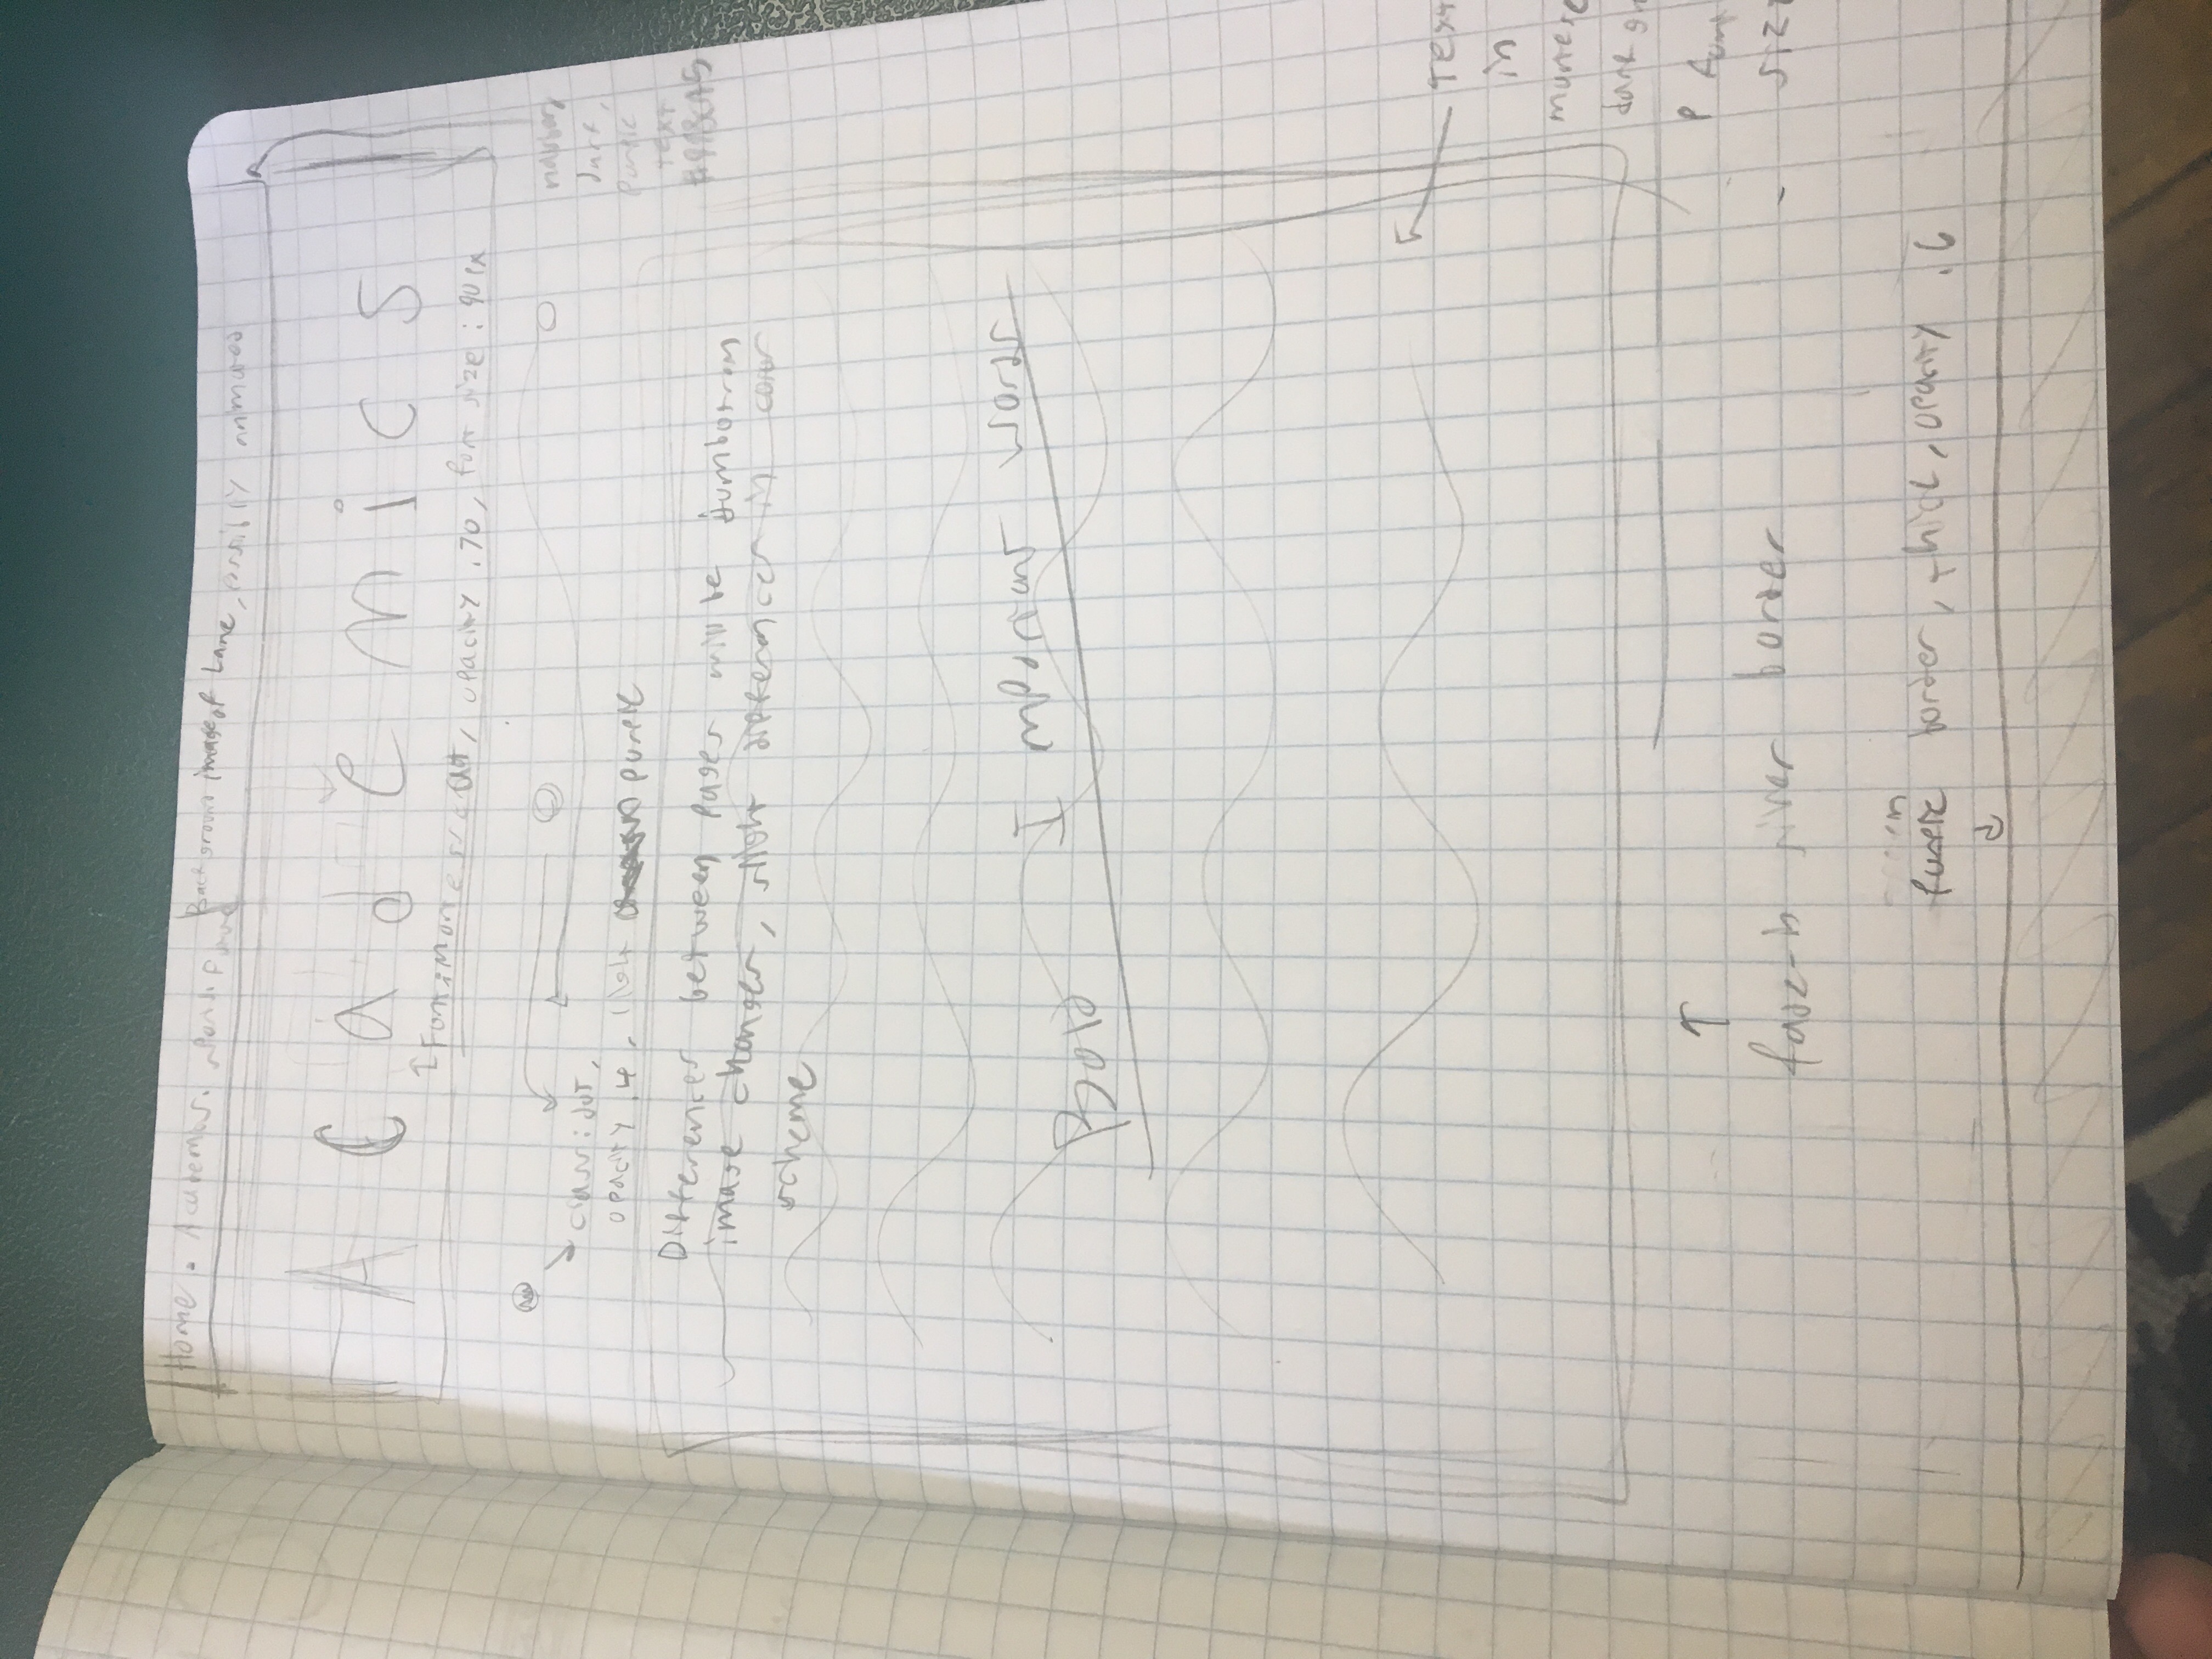 Home . Academics .
Background image of Lane, possibly animated
Academics
opacity .70, font size : 90px
class: dot,
opacity .4, light purple
navbar
dark,
purple
text
Differences between pages will be jumbotron
image changes, slight differences in color
scheme
Bold Important words
Text
in
dark
P font
fade-in silver border
in
purple border, thick, opacity .6